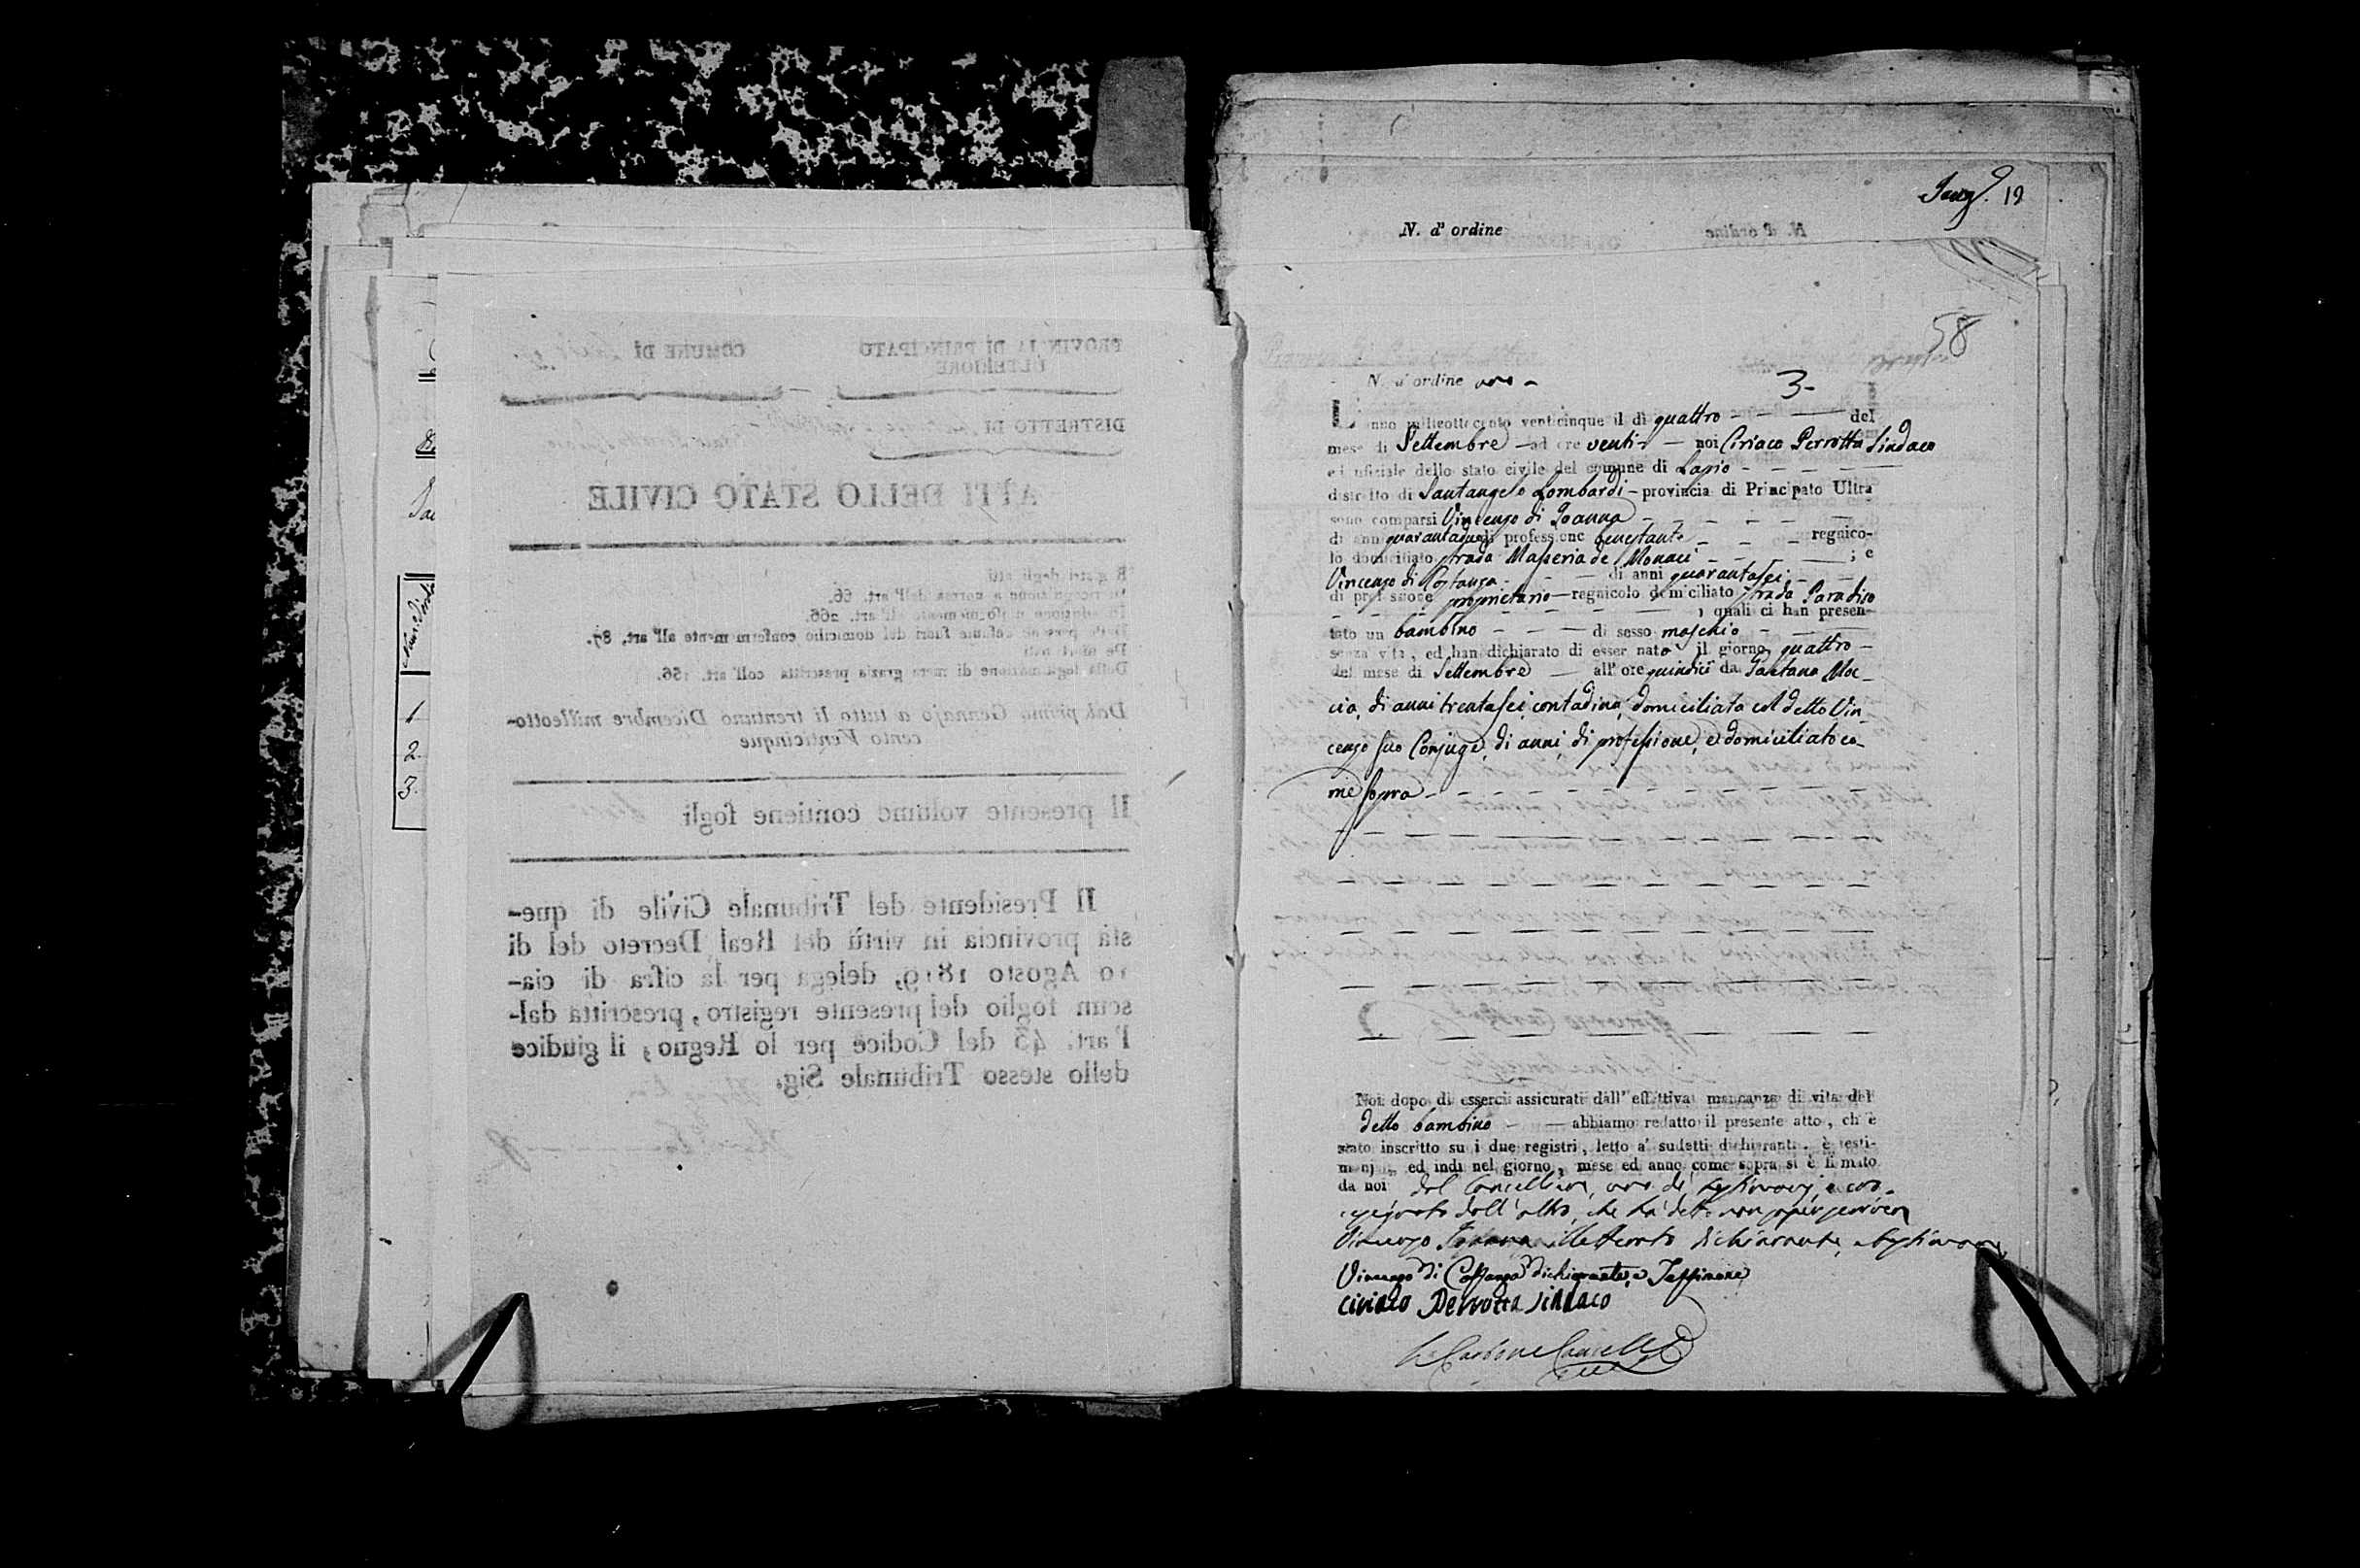 Num. d'ordi
1
2.
3.
PROVINCIA DI PRINCIPATO
ULTERIORE
COMUNE DI
DISTRETTO DI
ATTI DELLO STATO CIVILE
Registri degli atti
Di ricognizione a norma dell'art. 66.
Di adozione
all'art. 266.
Delle persone defunte fuori del domicilio conformemente all'art. 87.
De nati morti
Della legittimazione di mera grazia prescritta coll'art. 256.
Dal primo Gennajo a tutto li trentuno Dicembre milleotto-
cento Venticinque
Il presente volume contiene fogli
Il Presidente del Tribunale Civile di que-
sta provincia in virtù del Real Decreto del dì
10 Agosto 1819, delega per la cifra di cia-
scun foglio del presente registro, prescritta dal-
l'art. 43 del Codice per lo Regno, il giudice
dello stesso Tribunale Sig.
19
N. d' ordine
58
N. d'ordine uno -
3-
L'anno milleottocento venticinque il dì quattro - - - del
mese di Settembre - ad ore venti - - noi Ciriaco Perrotta Sindaco
ed uficiale dello stato civile del comune di Lapio - - - - -
distretto di Santangelo Lombardi - provincia di Principato Ultra
sono comparsi Vincenzo di Joanna - - - - -
di anni quarantadue di professione benestante - - - regnico-
lo domiciliato strada Masseria de' Monaci - - - - ; e
Vincenzo di Costanza - - - - di anni quarantasei - -
di professione proprietario - regnicolo domiciliato strada Paradiso
- - - - - - - - , quali ci han presen-
tato un bambino - - - di sesso maschio - -
senza vita, ed han dichiarato di esser nato il giorno quattro -
del mese di Settembre - all' ore quindici da Gaetana Moc-
cia, di anni trentasei, contadina, domiciliata col detto Vin-
cenzo suo Conjuge, di anni, di professione, e domiciliato co-
me sopra - - - - - - - - - -
Noi dopo di esserci assicurati dall' effettiva mancanza di vita del
detto bambino - - abbiamo redatto il presente atto, ch'è
stato inscritto su i due registri, letto a' sudetti dichiaranti, è testi-
monj, ed indi nel giorno, mese ed anno come sopra si è firmato
da noi dal Cancelliere, uno de' testimonj, e cro-
cesegnato dall' altro, che ha detto non saper scrivere
Vincenzo Joanna illetterato dichiarante, e testimone
Vincenzo di Costanza dichiarante, e Testimone
Ciriaco Perrotta Sindaco
Carbone Cancell